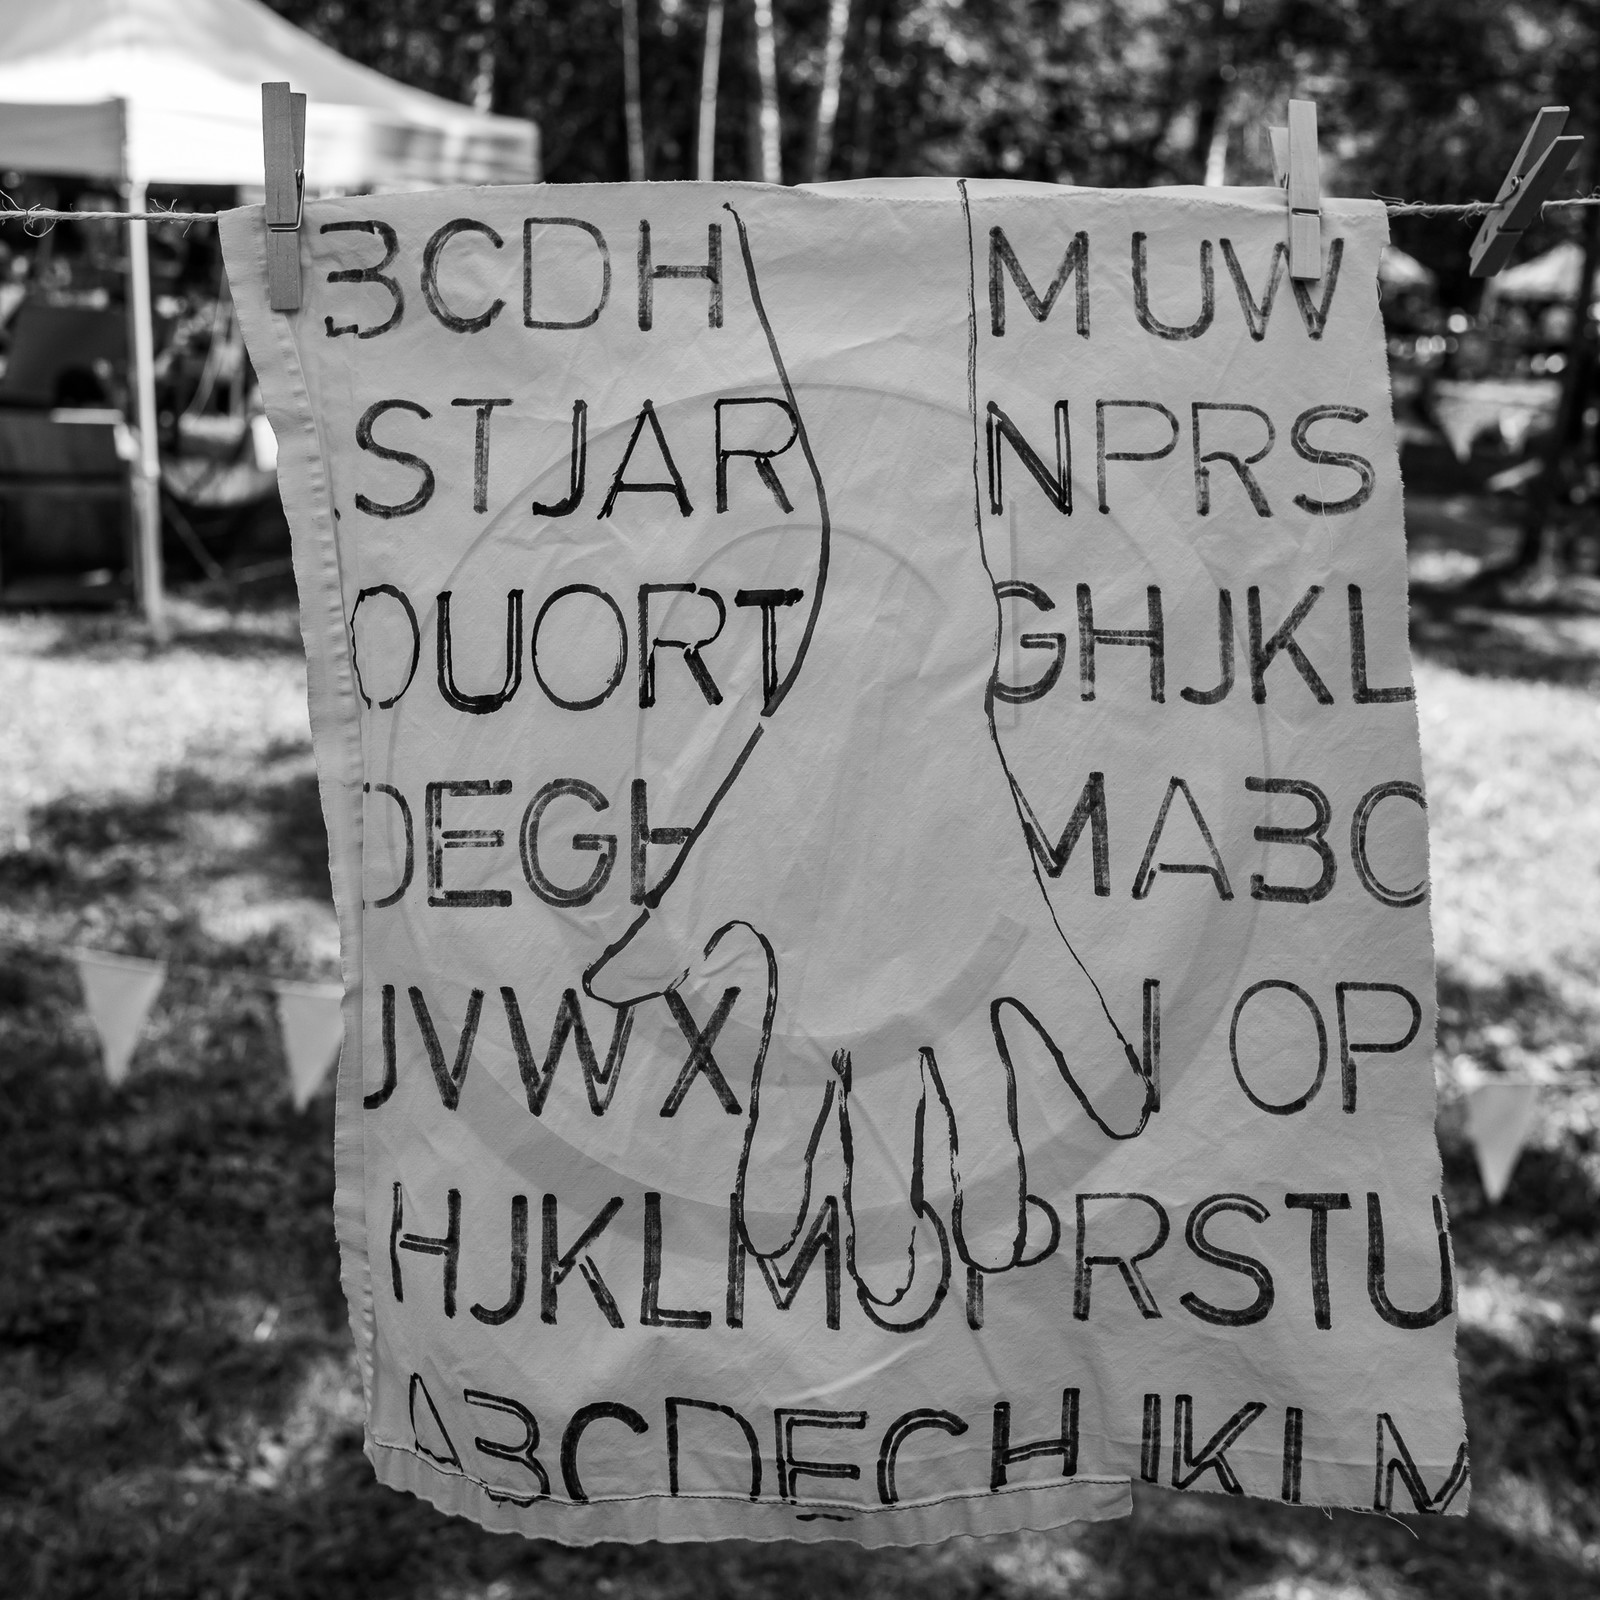 BCDH MUW
STJAR NPRS
OUORT GHJKL
DEGH MABC
JVWX N OP
HJKLMOPRSTU
ABCDEGH JKL M